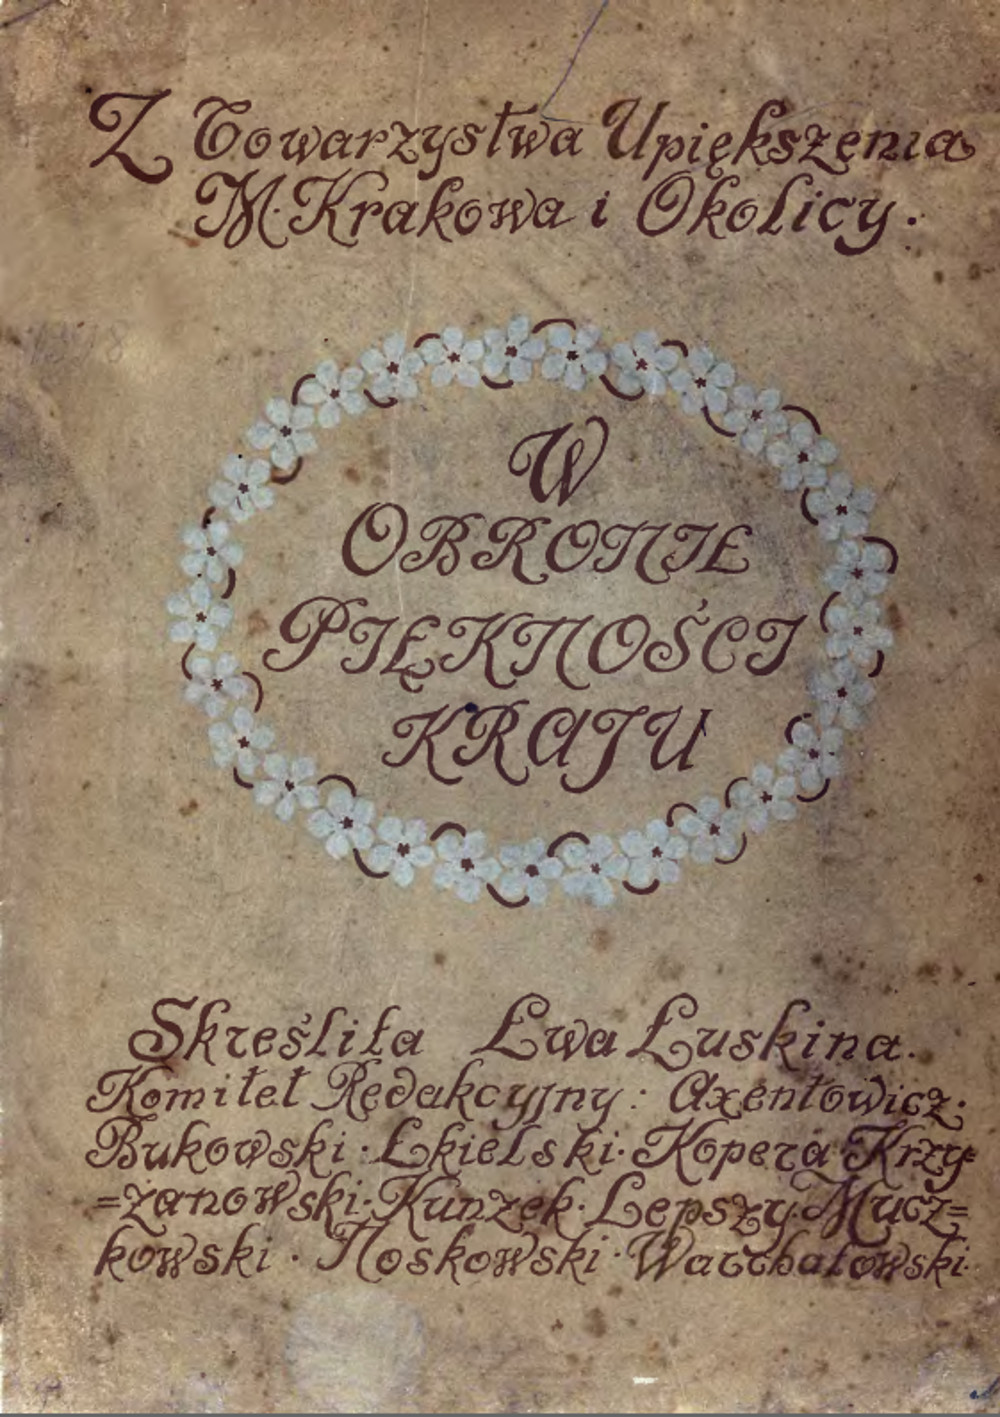 Z Towarzystwa Upiększenia
M. Krakowa i Okolicy.
W
OBRONIE
PIĘKNOŚCI
KRAJU
Skreśliła Ewa Łuskina.
Komitet Redakcyjny: Axentowicz·
Bukowski · Ekielski · Kopera · Krzy=
=żanowski · Kunzek · Lepszy · Mucz=
kowski · Noskowski · Warchałowski·